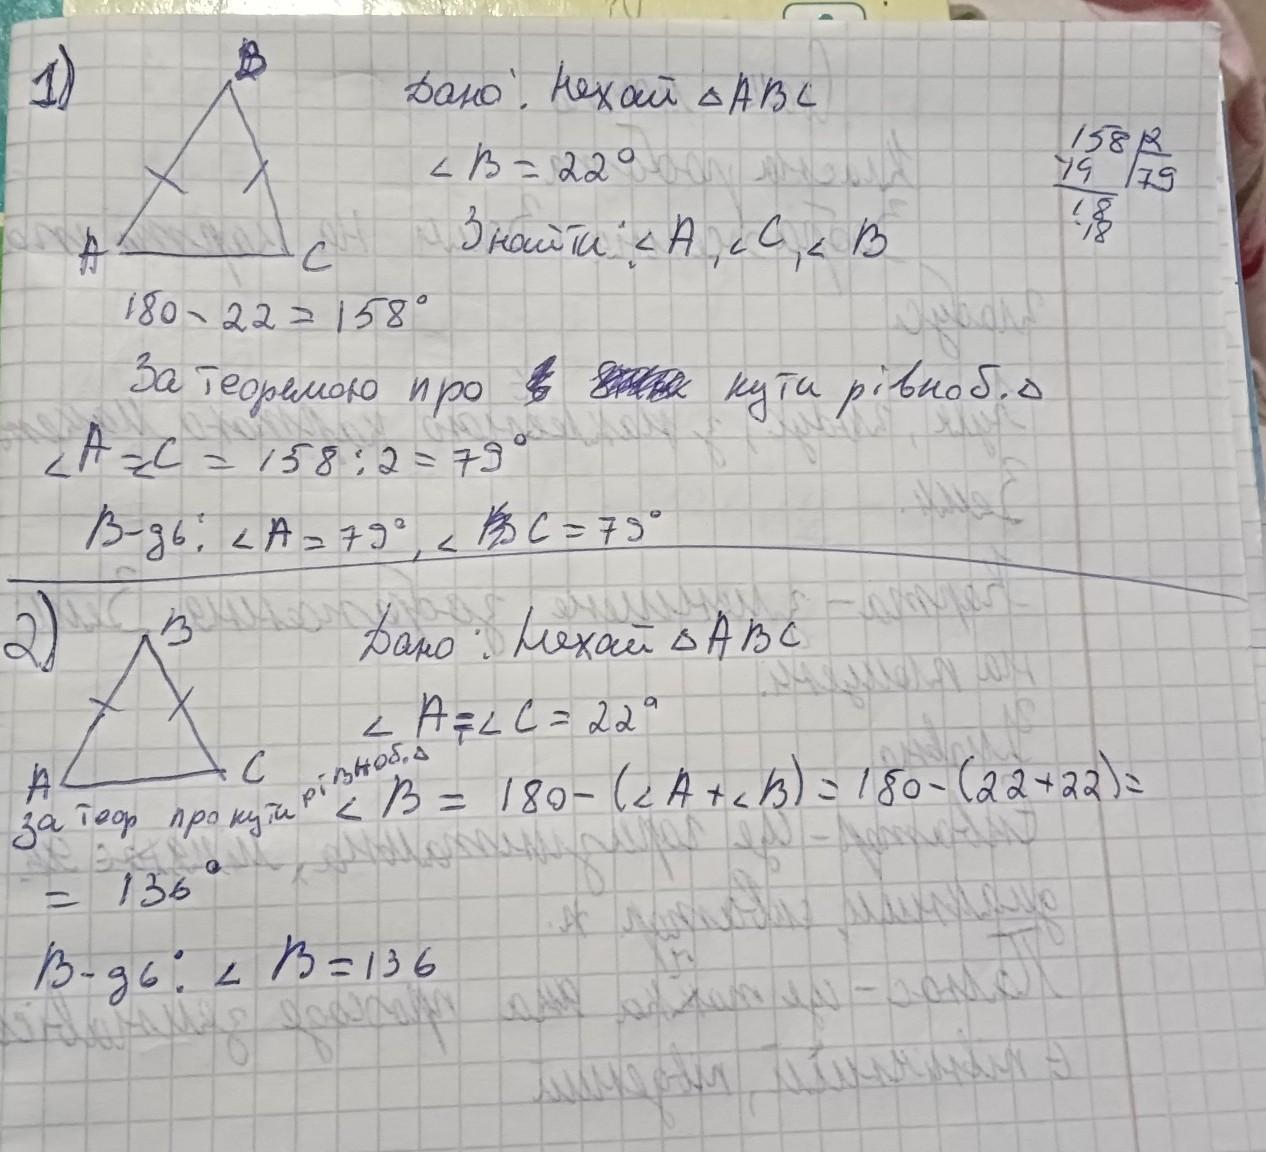 1)
B
A
C
Дано: Нехай △ABC
∠B = 22°
Знайти: ∠A, ∠C, ∠B
158 2
79
18
18
180 - 22 = 158°
За теоремою про кути рівноб. △
∠A = ∠C = 158 : 2 = 79°
В-дь: ∠A = 79°, ∠C = 79°
2)
B
A
C
Дано: Нехай △ABC
∠A = ∠C = 22°
За теор про кути рівноб. △
∠B = 180 - (∠A + ∠B) = 180 - (22 + 22) =
= 136°
В-дь: ∠B = 136